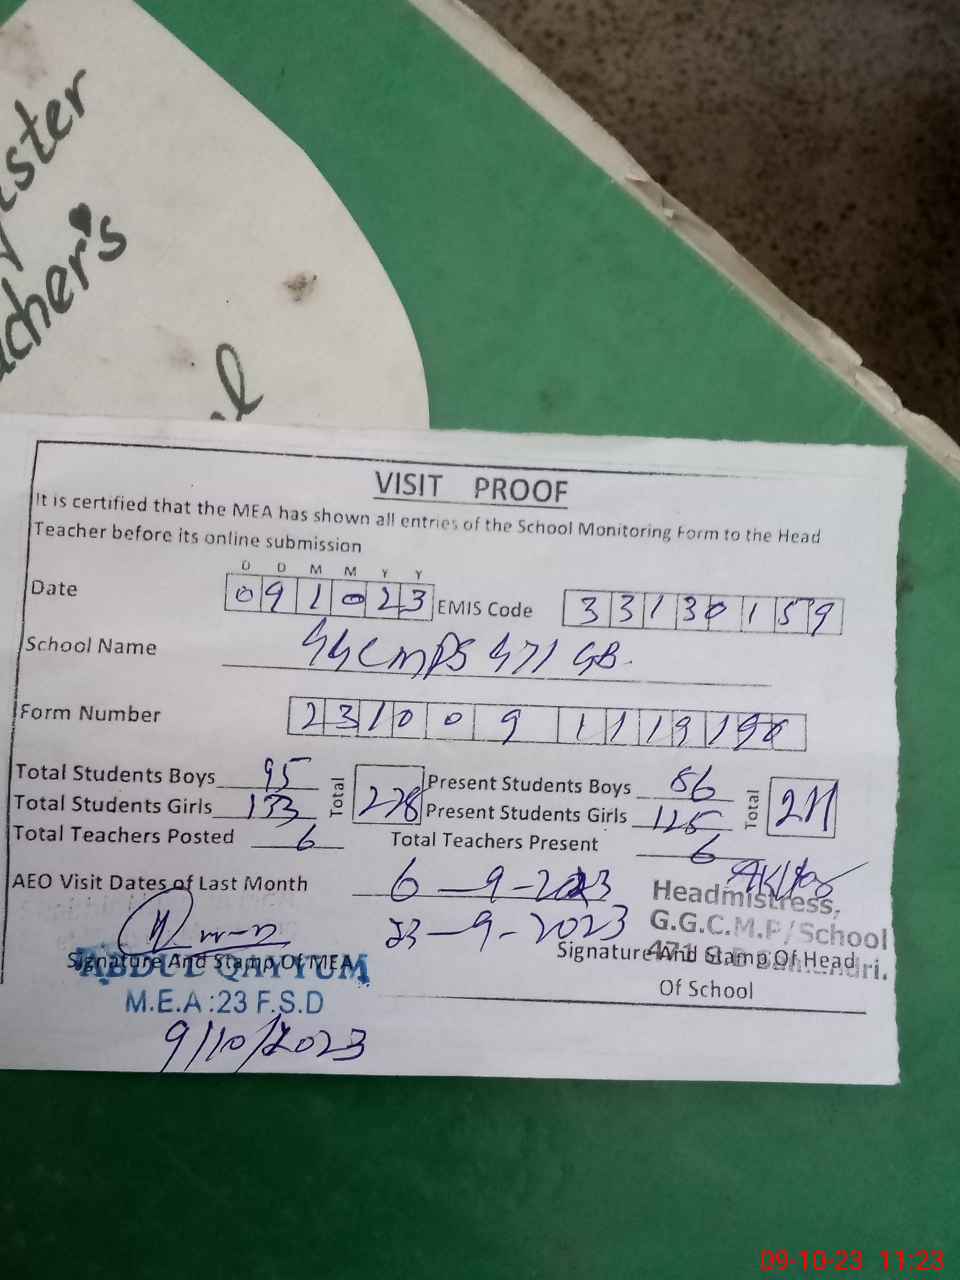 ister
acher's
VISIT PROOF
It is certified that the MEA has shown all entries of the School Monitoring Form to the Head
Teacher before its online submission
D D M M Y Y
Date 0 9 1 0 2 3 EMIS Code 3 3 1 3 0 1 5 9
School Name GGCMPS 471 GB.
Form Number 2 3 1 0 0 9 1 1 1 9 1
Total Students Boys 95 Total 228 Present Students Boys 86 Total 211
Total Students Girls 133 Present Students Girls 125
Total Teachers Posted 6 Total Teachers Present 6
AEO Visit Dates of Last Month 6-9-2023
23-9-2023
Headmistress,
G.G.C.M.P/School
471 G.B Samundri.
Signature And Stamp Of MEA
ABDUL QAYYUM
M.E.A :23 F.S.D
9/10/2023
Signature And Stamp Of Head
Of School
09-10-23 11:23